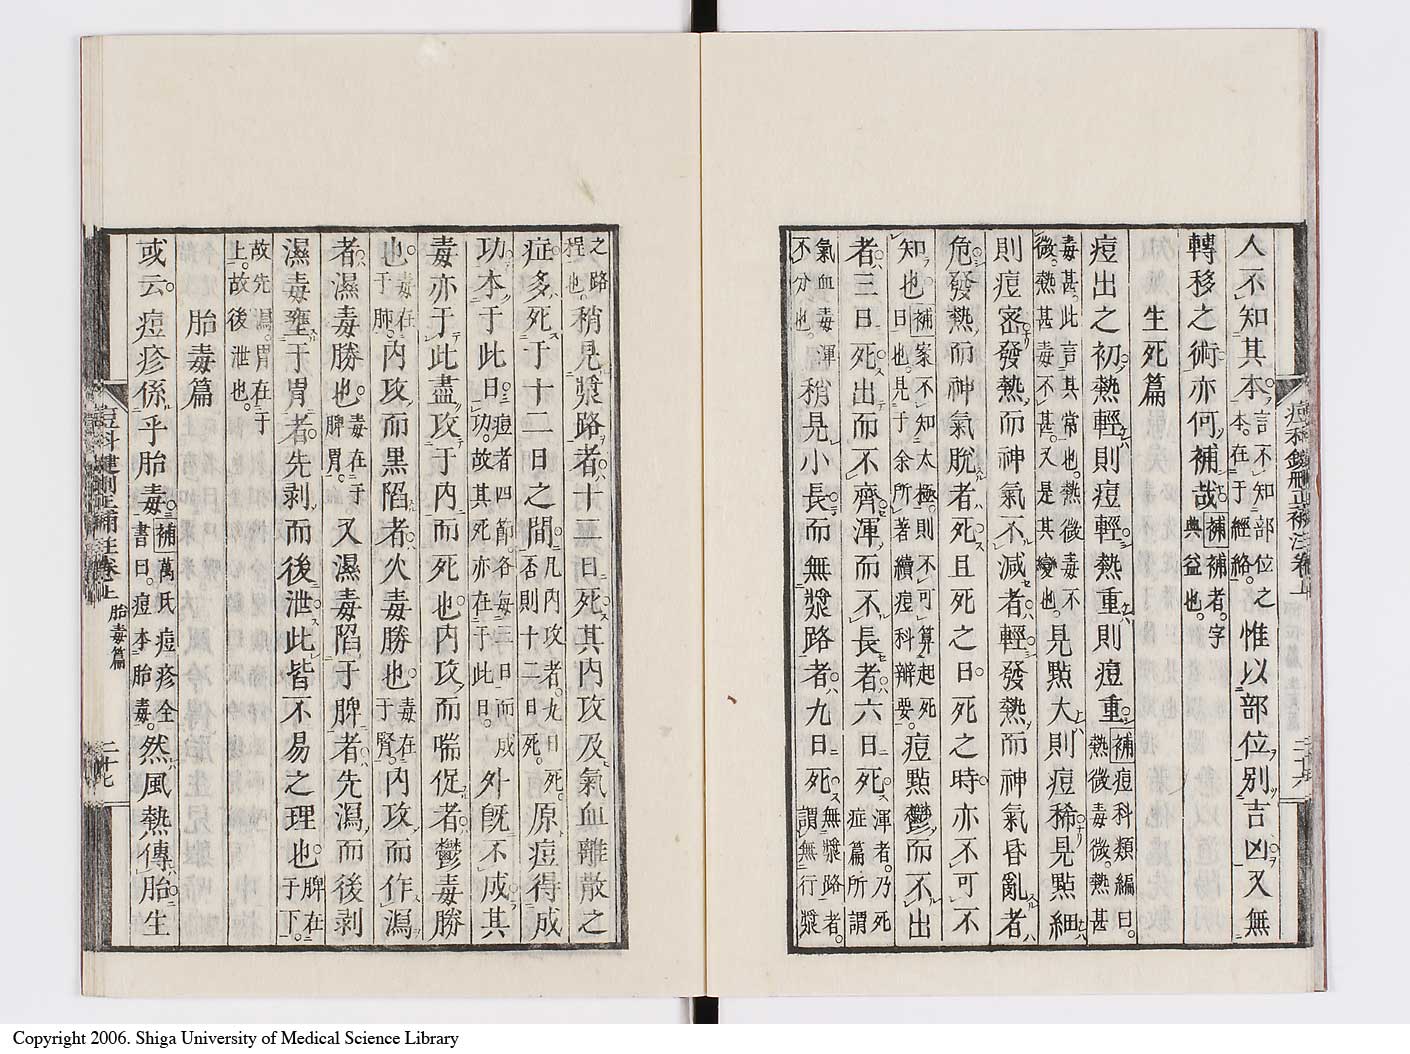 人不知其本言不知部位之本在于經絡。惟以部位別吉凶又無
轉移之術亦何補哉補補者。字典益也。
生死篇
痘出之初熱輕則痘輕熱重則痘重補痘科類編曰。熱微毒微。熱甚
毒甚。此言其常也。熱微毒不微。熱甚毒不甚。又是其變也。見點大則痘稀見點細
則痘密發熱而神氣不減者輕發熱而神氣昏亂者
危發熱而神氣脫者死且死之日死之時亦不可不
知也補案不知太極。則不可算起死日也。見于余所著續痘科辯要。痘點鬱而不出
者三日死出而不齊渾而不長者六日死渾者。乃死症篇所謂
氣血毒渾不分也。稍見小長而無漿路者九日死無漿路者。謂無行漿
之路程也。稍見漿路者十一日死其內攻及氣血離散之
症多死于十二日之間凡內攻者。九日死。否則十二日死。原痘得成
功本于此日痘者四節。各每三日而成功。故其死亦在于此日。外旣不成其
毒亦于此盡攻于內而死也內攻而喘促者鬱毒勝
也毒在于肺。內攻而黑陷者火毒勝也毒在于腎。內攻而作瀉
者濕毒勝也毒在于脾胃。又濕毒陷于脾者先瀉而後剥
濕毒壅于胃者先剥而後泄此皆不易之理也脾在于下。
故先瀉。胃在于上。故後泄也。
胎毒篇
或云痘疹係乎胎毒補萬氏痘疹全書曰。痘本胎毒。然風熱傳胎生
胎毒篇
二十七
Copyright 2006. Shiga University of Medical Science Library